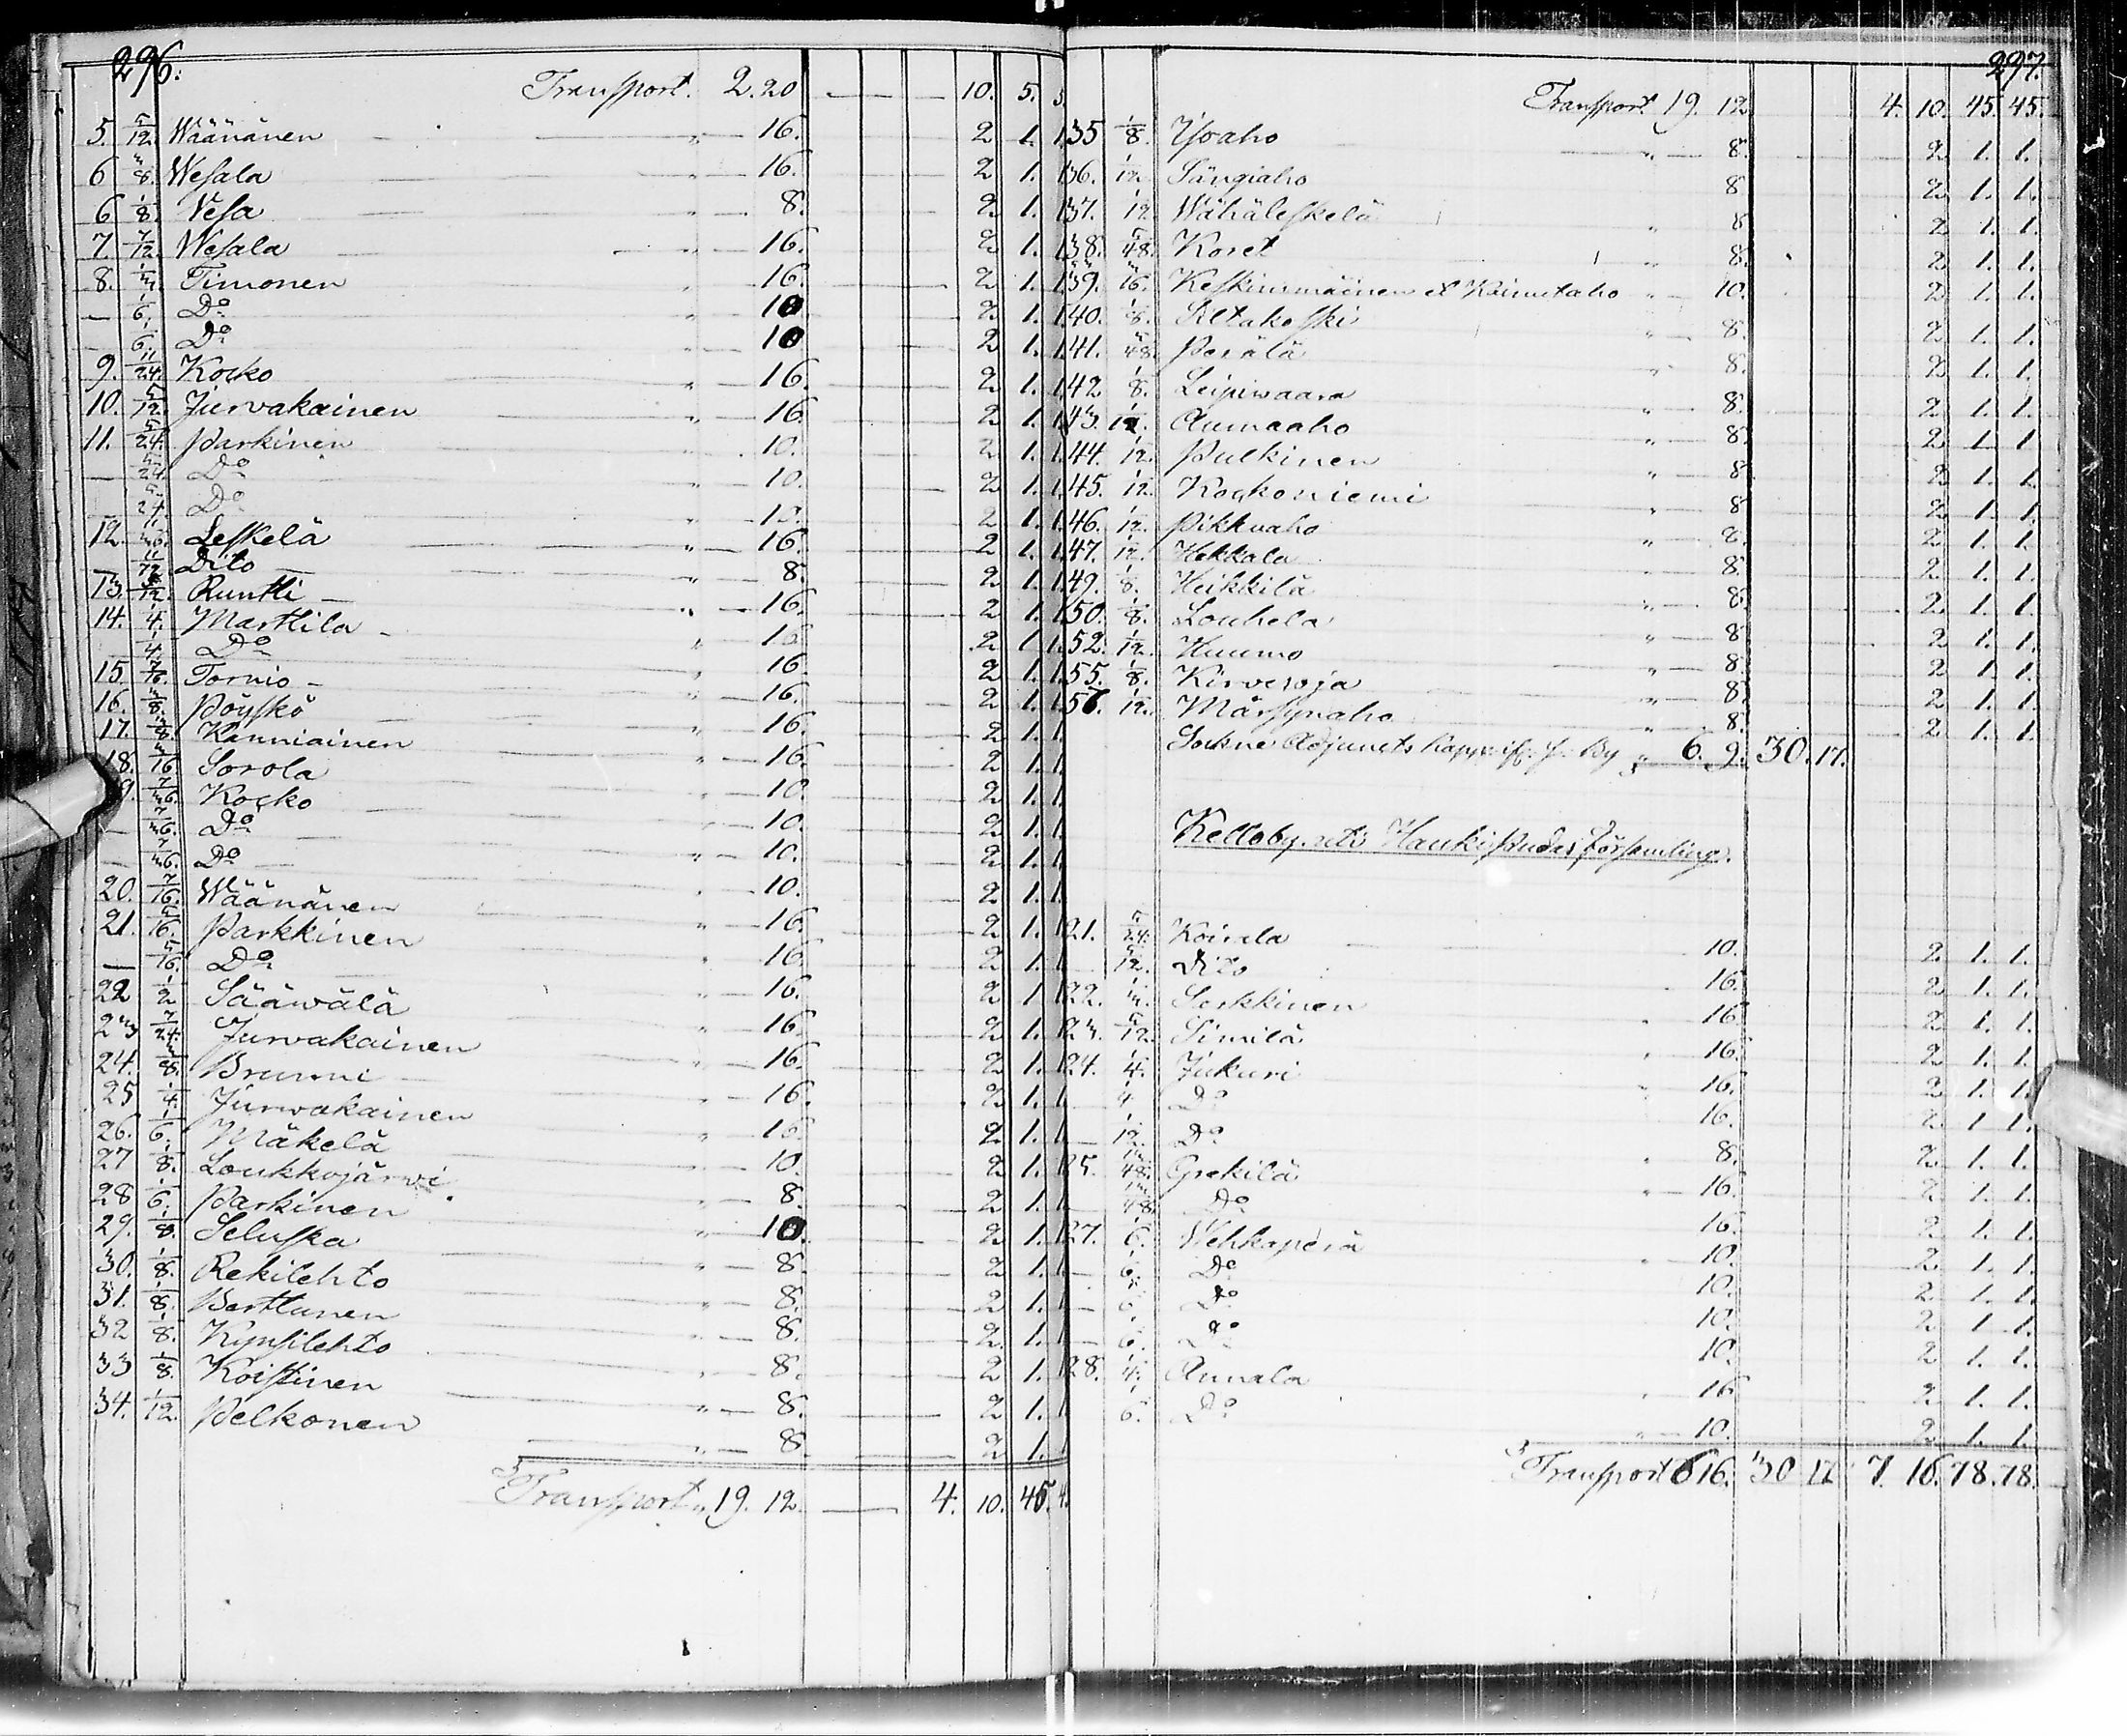 296.
Transport. 2. 20 — — 10. 5. 5.
5. 5/12. Wäänänen " — 16. 2 1. 1.
6 3/8. Wesala " — 16. 2 1. 1.
6 1/8. Vesa " — 8. 2 1. 1.
7. 7/12. Wesala " — 16. 2 1. 1.
8. 1/3. Timonen " 16. 2 1. 1.
— 1/6. Do " 10 2 1. 1.
— 1/6. Do " 10 2 1. 1.
9. 11/24. Kocko " — 16. 2 1. 1.
10. 5/12. Jurvakainen " — 16. 2 1. 1.
11. 5/24. Parkinen " 10. 2 1. 1.
— 5/24 Do " — 10. 2 1. 1.
5/24. Do " — 10. 2 1. 1.
12. 11/36. Leskelä " — 16. 2 1. 1.
11/72. Dito " — 8. 2 1. 1.
13. 5/12. Runtti " — 16. 2 1. 1.
14. 1/4. Marttila " — 16. 2 1 1.
1/4. Do " 16. 2 1. 1.
15. 7/16. Tornio " — 16. 2 1. 1.
16. 3/8. Pöyskö " — 16. 2 1. 1.
17. 3/8. Kanniainen " — 16. 2 1. 1.
18. 3/16 Sorola " — 10. 2 1. 1.
19. 7/36. Kocko " — 10. 2 1. 1.
— 7/36. Do " — 10. 2 1. 1.
— 7/36. Do " — 10. 2 1. 1.
20. 7/16. Wäänänen " — 16. 2 1. 1.
21. 5/16. Parkkinen " — 16. 2 1. 1.
— 5/16. Do " — 16. 2 1. 1.
22 1/2 Sääwälä " — 16. 2 1. 1.
23 7/24. Jurvakainen " — 16. 2 1. 1.
24. 3/8. Brunni " — 16. 2 1. 1.
25 1/4. Jurwakainen " — 16. 2 1. 1.
26. 1/6. Mäkelä " — 10. 2 1. 1.
27 1/8. Loukkojärwi " — 8. 2 1. 1.
28 1/6. Parkinen " — 10. 2 1. 1.
29. 1/8. Seluska " — 8. 2 1. 1.
30. 1/8. Rekilehto " — 8. 2 1. 1.
31. 1/8. Berttunen " — 8. 2 1. 1.
32 1/8. Kynsilehto " — 8. 2 1. 1.
33 1/8. Koistinen " — 8. 2 1. 1.
34. 1/12. Pelkonen " — 8. 2 1. 1.
Transport " 19. 12. — — 4. 10. 45. 4
297.
Transport 19. 12 4. 10. 45. 45.
35 1/8. Ysoaho " — 8. 2 1. 1.
36. 1/12 Sängiaho 8 2 1. 1.
37. 1/12 Wähäleskelä " 8 2 1. 1.
38. 5/48. Koret " 8. 2 1. 1.
39. 3/16. Keskimmäinen et Kaimutaho " — 10. 2 1. 1.
40. 1/8. Siltakoski " — 8. 2 1. 1.
41. 5/48. Perälä " 8. 2 1. 1.
42 1/8. Leipiwaara " — 8. 2 1. 1.
43. 1/12. Aumaaho " — 8. 2 1. 1
44. 1/12. Pulkinen " — 8 2 1. 1.
45. 1/12. Kockoniemi " — 8 2 1. 1.
46. 1/12. Pikkuaho " — 8. 2 1. 1.
47. 1/12. Hekkala " — 8. 2 1. 1.
49. 1/8. Heikkilä " — 8. 2. 1. 1.
50. 1/8. Louhela " — 8 2 1. 1.
52. 1/12. Huumo " — 8 2 1. 1.
55. 1/8. Kirvesoja " — 8. 2 1. 1.
56. 1/12. Märsynaho " — 8. 2 1. 1.
Sockne Adjuncts By " 6. 9. 30. 17.
Kelloby uti Haukipudas församling.
121. 5/24. Koivala 10. 2 1. 1.
5/12. Dito 16. 2 1. 1.
122. Sorkkinen 16 2 1. 1.
123. 5/12. Similä 16. 2 1. 1.
124. 1/4. Jukuri 16. 2 1. 1.
1/4 Do 16. 2 1 1.
— 1/12. Do 8. 2 1. 1.
125. Grekilä " — 16. 2 1. 1.
Do 16. 2 1. 1.
127. 1/6. Wehkaperä " — 10. 2 1. 1.
— 1/6. Do 10. 2 1. 1.
— 1/6. Do 10. 2 1 1.
— 1/6. Do 10. 2 1. 1.
128. 1/4. Annala 16 2 1. 1.
1/6. Do " — 10. 2 1. 1.
Transport 6 16. 30 17 7. 16. 78. 78.